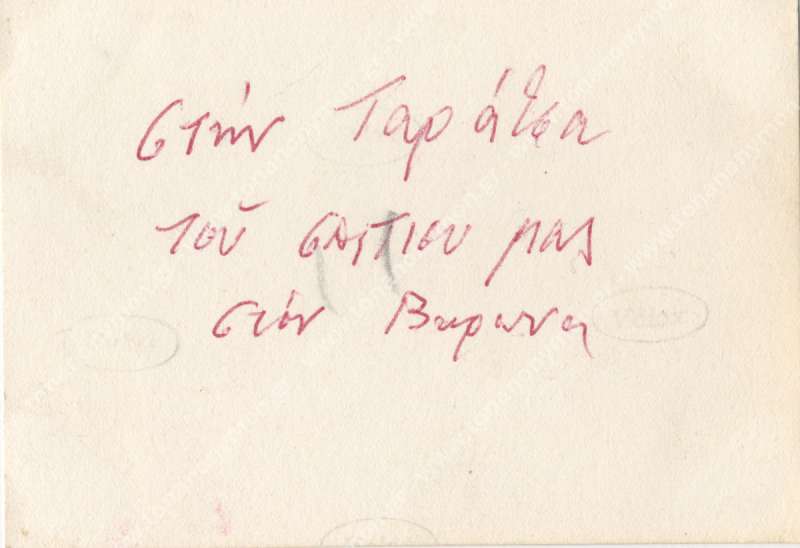 στήν Ταράτσα
τοῦ σπιτιου μας
στόν Βυρωνα
Velox